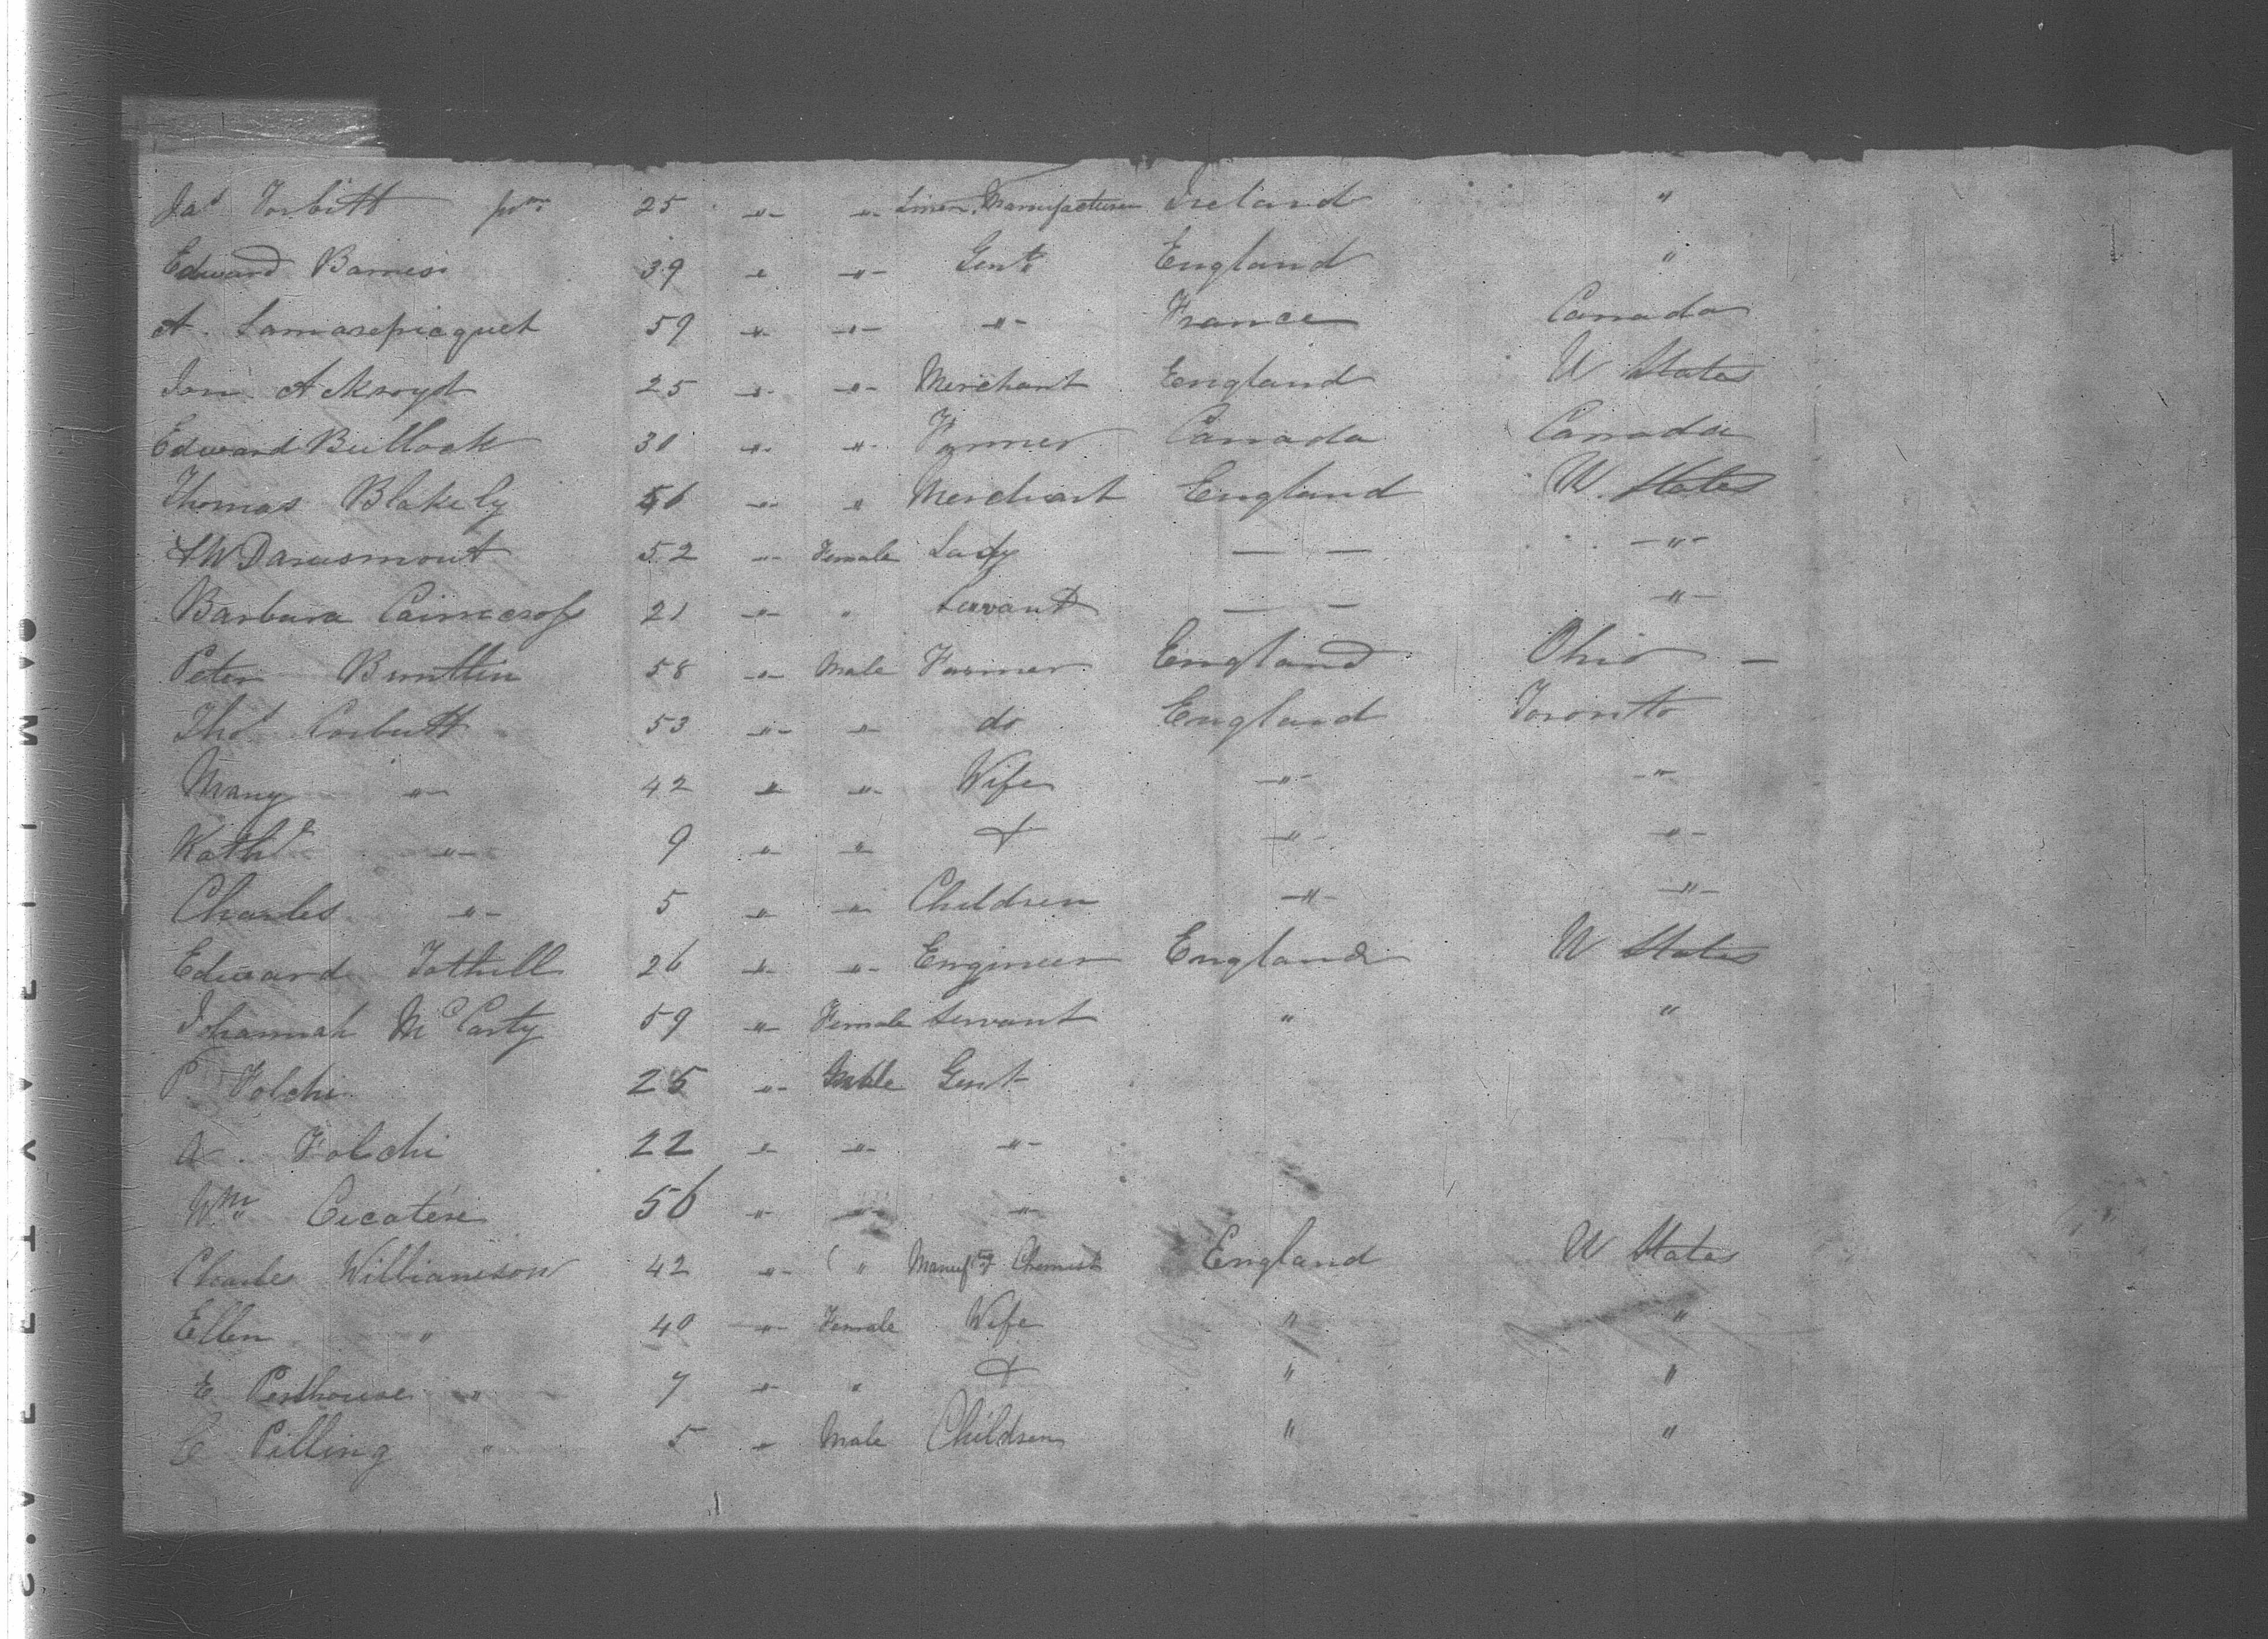 Jas Torbitt junr 25 " " Linen Manufacturer Ireland "
Edward Barnes 39 " " Gent England "
A. Lamarepicquet 59 " " " France Canada
Jon. Ackroyd 25 " " Merchant England U States
Edward Bullock 30 " " Farmer Canada Canada
Thomas Blakely 56 " " Merchant England U. States
52 " Female Lady — — "
Barbara 21 " " Servant — — "
Peter Bunttin 58 " Male Farmer England Ohio —
Thos Corbutt 53 " " do England Toronto
Mary " 42 " " Wife " "
Kath " 9 " " & " "
Charles " 5 " " Children " "
Edward Tothill 26 " " Engineer England U States
Johannah McCarty 59 " Female Servant " "
P. Folchi 25 " Male Gent
A. Folchi 22 " " "
Wm 56 " " "
Charles Williamson 42 " " Manufg Chemist England U States
Ellen " 40 " Female Wife " "
E Penthouse " 7 " " & " "
C Pilling " 5 " Male Children " "